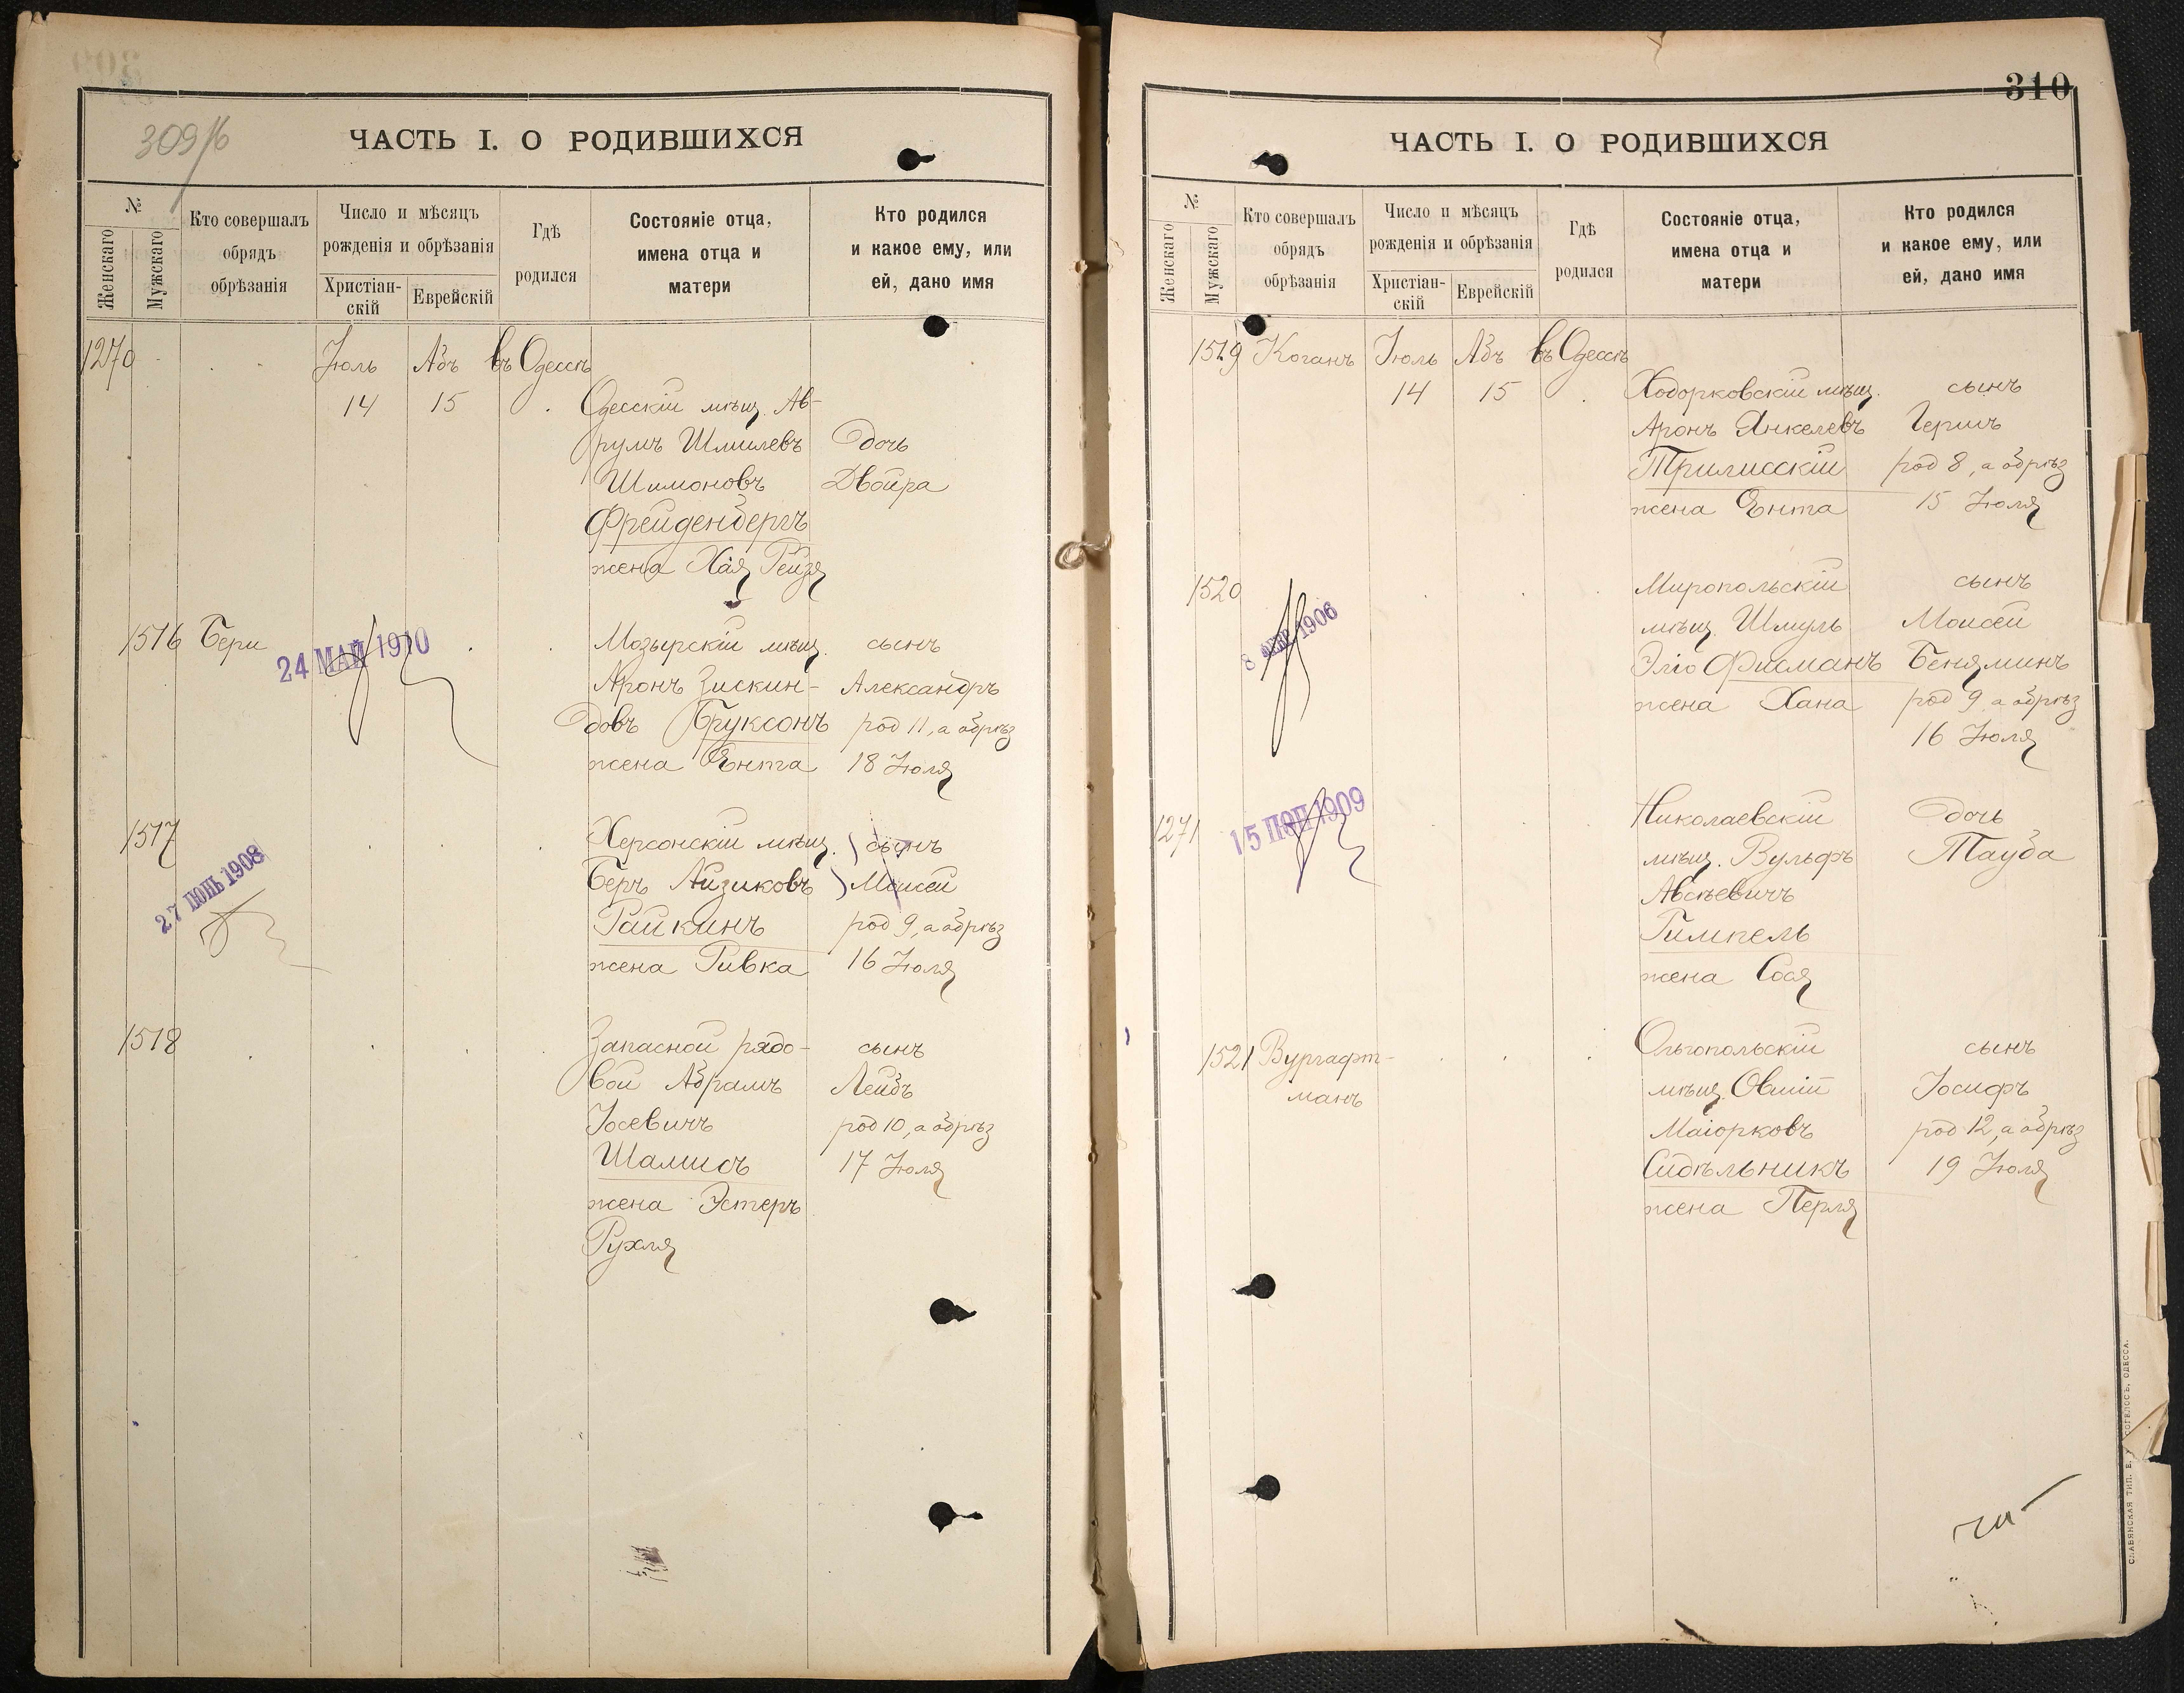 309/б
ЧАСТЬ I. О РОДИВШИХСЯ
№
Женскаго
Мужскаго
Кто совершалъ
обрядъ
обрѣзанія
Число и мѣсяцъ
рожденія и обрѣзанія
Христіан-
скій
Еврейскій
Гдѣ
родился
Состояніе отца,
имена отца и
матери
Кто родился
и какое ему, или
ей, дано имя
1270 Іюль Абъ въ Одессѣ
14 15 Одесскій мѣщ. Ав-
румъ Шмилевъ Дочь
Шимоновъ Двойра
Фрейденбергъ
жена Хая Рейзя
1516 Бери Мозырскій мѣщ. сынъ
24 МАЙ 1910
Аронъ Зискин- Александръ
довъ Бруксонъ род 11, а обрѣз
жена Энта 18 Іюля
1517 Херсонскій мѣщ. сынъ
27 ІЮНЬ 1908
Беръ Айзиковъ Моисей
Райкинъ род 9, а обрѣз
жена Ривка 16 Іюля
1518 Запасной рядо- сынъ
вой Абрамъ Лейбъ
Іосевичъ род 10, а обрѣз
Шамисъ 17 Іюля
жена Эстеръ
Рухля
310
ЧАСТЬ I. О РОДИВШИХСЯ
№
Женскаго
Мужскаго
Кто совершалъ
обрядъ
обрѣзанія
Число и мѣсяцъ
рожденія и обрѣзанія
Христіан-
скій
Еврейскій
Гдѣ
родился
Состояніе отца,
имена отца и
матери
Кто родился
и какое ему, или
ей, дано имя
1519 Коганъ Іюль Абъ въ Одессѣ
14 15 Ходорковскій мѣщ. сынъ
Аронъ Янкелевъ Гершъ
Трилисскій род 8, а обрѣз
жена Энта 15 Іюля
1520 Миропольскій сынъ
8 ФЕВ 1906
мѣщ. Шмуль Моисей
Эліо Фисманъ Беняминъ
жена Хана род 9 а обрѣз
16 Іюля
1271 Николаевскій Дочь
15 1909
мѣщ. Вульфъ Тауба
Авсѣевичъ
Гимпель
жена Сося
1521 Вургафт- Ольгопольскій сынъ
манъ мѣщ. Овшій Іосифъ
Маіорковъ род 12, а обрѣз
Сидѣльникъ 19 Іюля
жена Перля
СЛАВЯНСКАЯ ТИП. ОДЕССА.